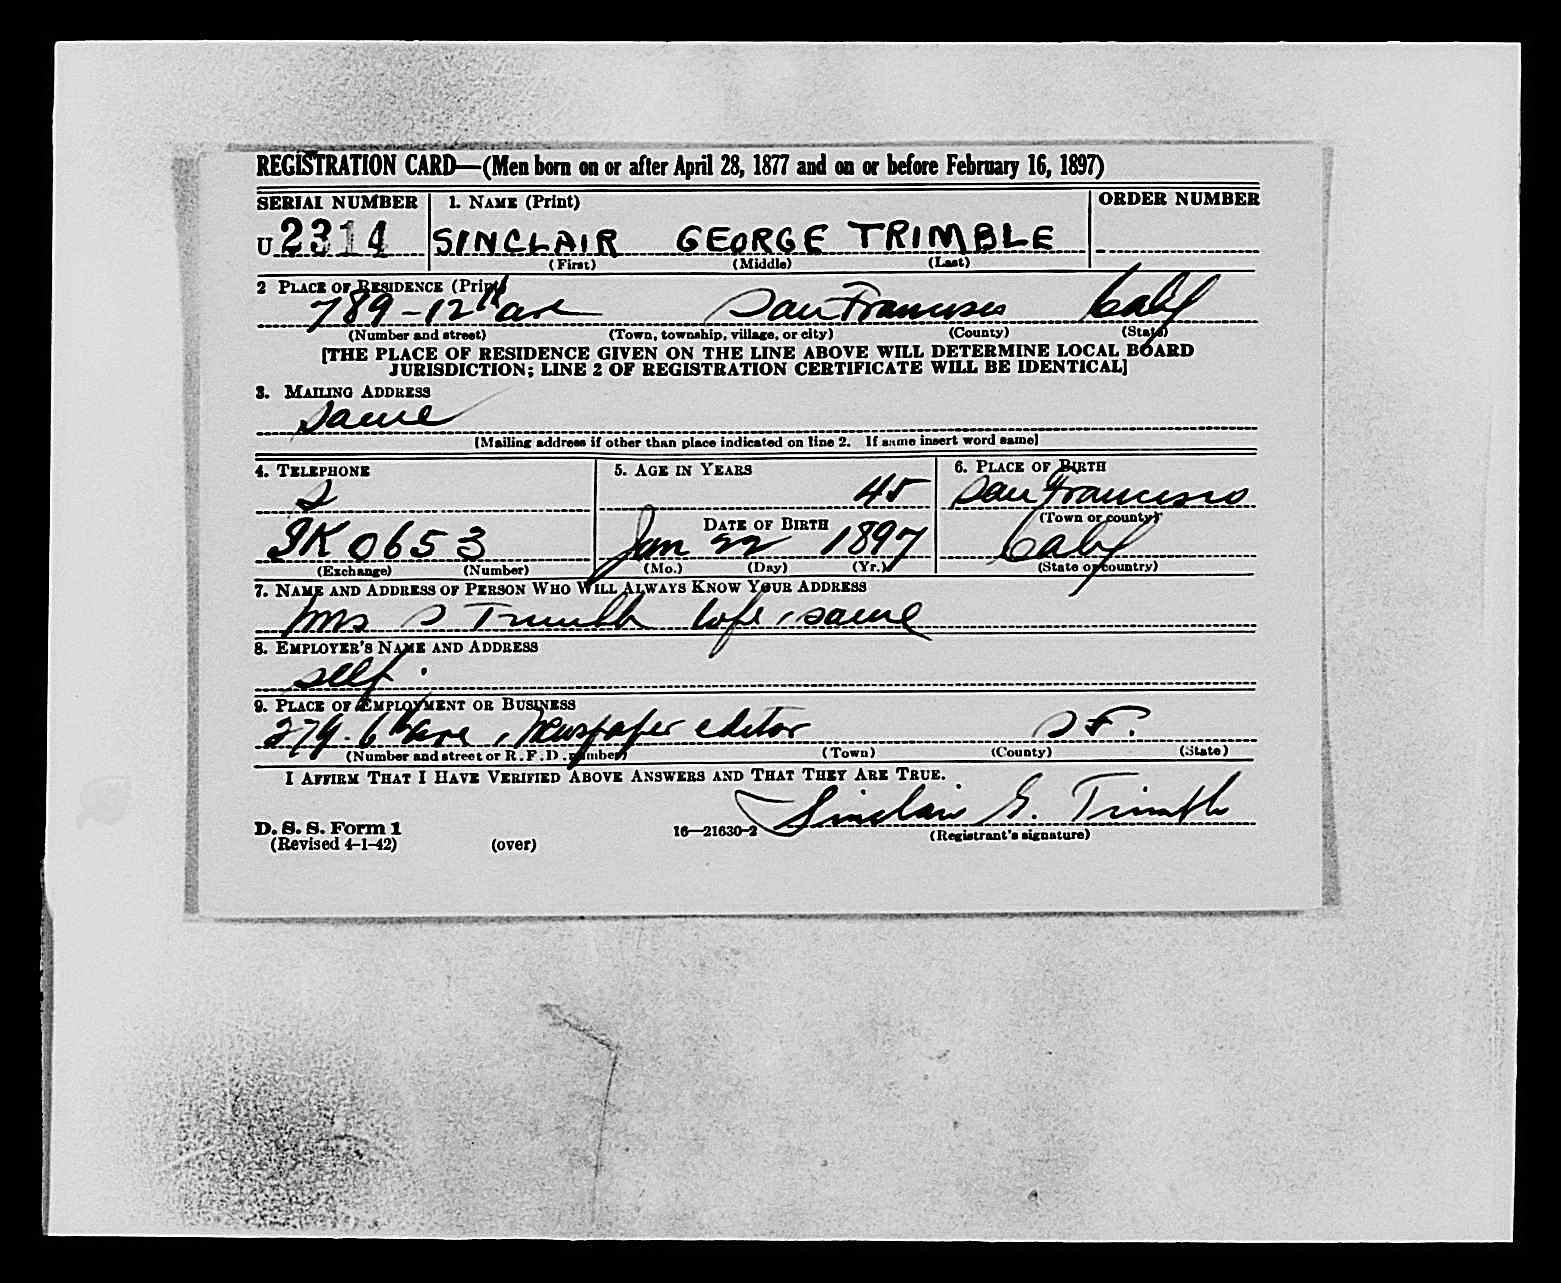 REGISTRATION CARD—(Men born on or after April 28, 1877 and on or before February 16, 1897)
SERIAL NUMBER 1. NAME (Print) ORDER NUMBER
U 2314 SINCLAIR GEORGE TRIMBLE
(First) (Middle) (Last)
2 PLACE OF RESIDENCE (Print)
789-12th ave San Francisco Calif
(Number and street) (Town, township, village, or city) (County) (State)
[THE PLACE OF RESIDENCE GIVEN ON THE LINE ABOVE WILL DETERMINE LOCAL BOARD
JURISDICTION; LINE 2 OF REGISTRATION CERTIFICATE WILL BE IDENTICAL]
3. MAILING ADDRESS
Same
[Mailing address if other than place indicated on line 2. If same insert word same]
4. TELEPHONE 5. AGE IN YEARS 6. PLACE OF BIRTH
45 San Francisco
DATE OF BIRTH (Town or county)
SK 0653 Jan 22 1897 Calif
(Exchange) (Number) (Mo.) (Day) (Yr.) (State or country)
7. NAME AND ADDRESS OF PERSON WHO WILL ALWAYS KNOW YOUR ADDRESS
Mrs S Trimble wife, same
8. EMPLOYER'S NAME AND ADDRESS
self.
9. PLACE OF EMPLOYMENT OR BUSINESS
279-6th ave, Newspaper editor S F.
(Number and street or R. F. D. number) (Town) (County) (State)
I AFFIRM THAT I HAVE VERIFIED ABOVE ANSWERS AND THAT THEY ARE TRUE.
Sinclair G. Trimble
D. S. S. Form 1 16—21630-2 (Registrant's signature)
(Revised 4-1-42) (over)